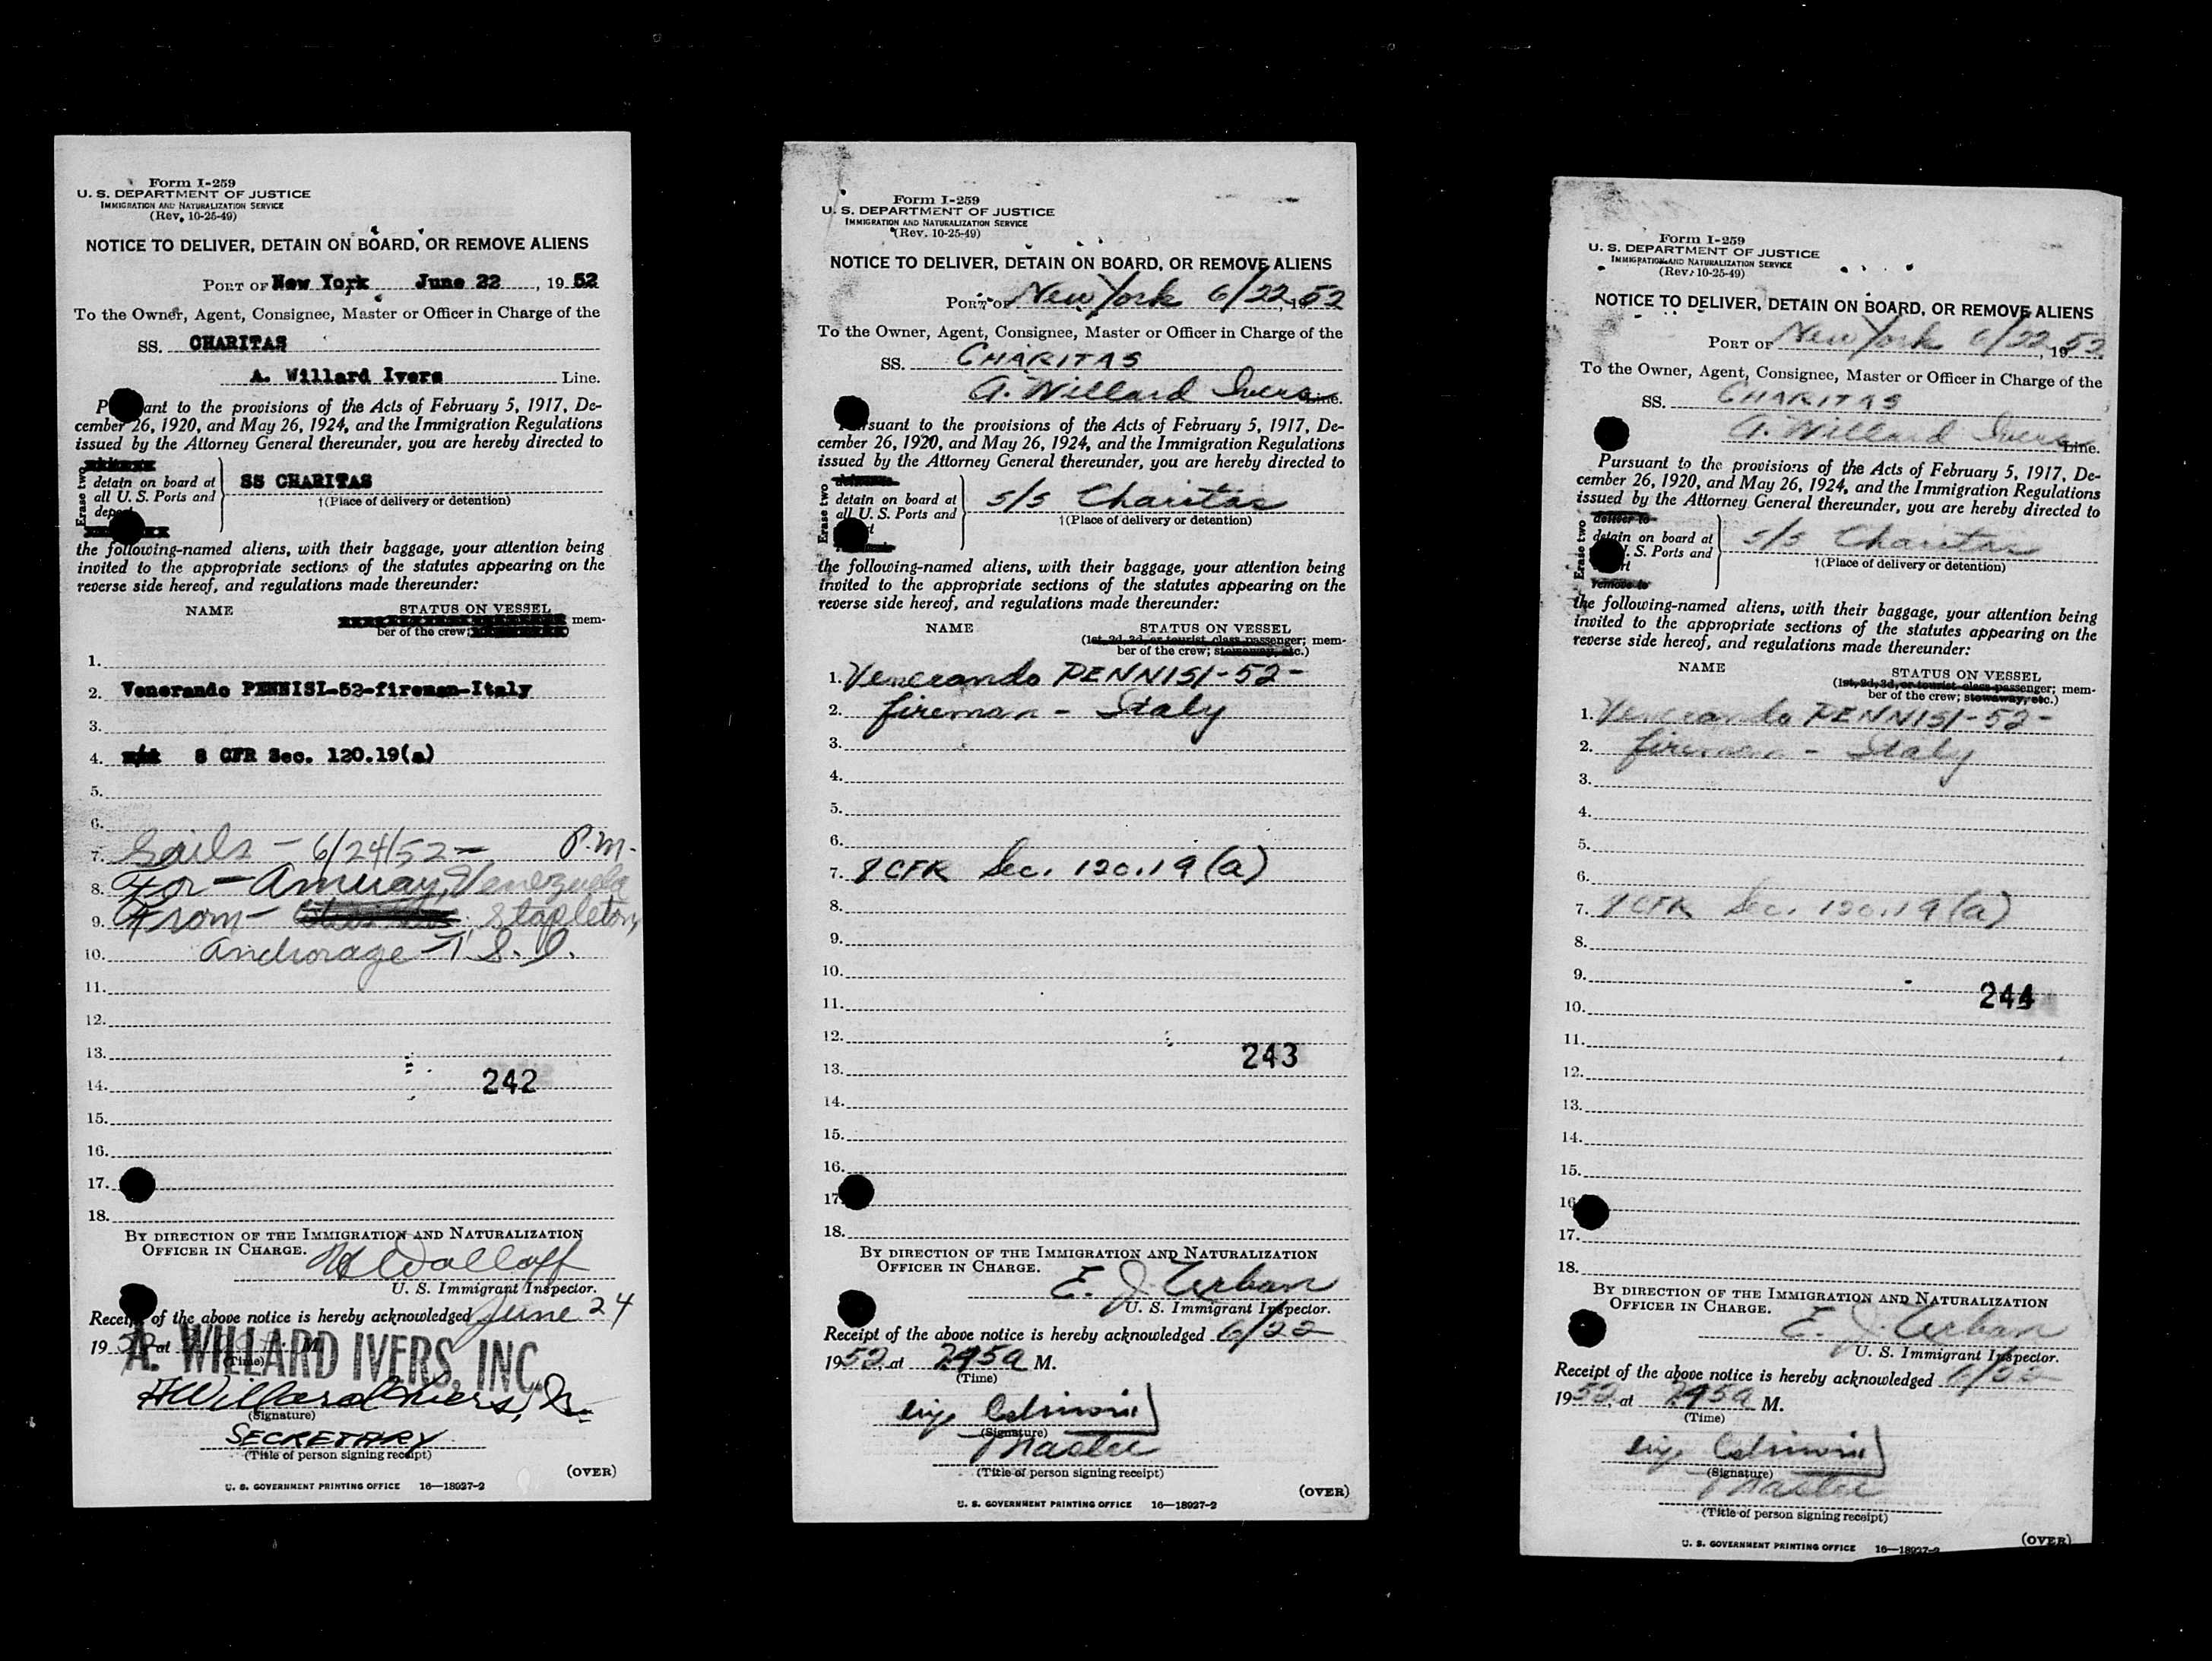 Form I-259
U. S. DEPARTMENT OF JUSTICE
IMMIGRATION AND NATURALIZATION SERVICE
(Rev. 10-25-49)
NOTICE TO DELIVER, DETAIN ON BOARD, OR REMOVE ALIENS
PORT OF New York June 22, 19 52
To the Owner, Agent, Consignee, Master or Officer in Charge of the
SS. CHARITAS
A. Willard Ivers Line.
P ant to the provisions of the Acts of February 5, 1917, De-
cember 26, 1920, and May 26, 1924, and the Immigration Regulations
issued by the Attorney General thereunder, you are hereby directed to
Erase two
detain on board at
all U. S. Ports and
SS CHARITAS
†(Place of delivery or detention)
the following-named aliens, with their baggage, your attention being
invited to the appropriate sections of the statutes appearing on the
reverse side hereof, and regulations made thereunder:
NAME STATUS ON VESSEL
mem-
ber of the crew;
1.
2. Venerando PENNISI-52-fireman-Italy
3.
4. 8 CFR Sec. 120.19(a)
5.
6.
7. Sails - 6/24/52 - P.M.
8. For - Amuay, Venezuela
9. From - Stapleton,
10. Anchorage - S. I.
11.
12.
13.
14. 242
15.
16.
17.
18.
BY DIRECTION OF THE IMMIGRATION AND NATURALIZATION
OFFICER IN CHARGE.
U. S. Immigrant Inspector.
Receipt of the above notice is hereby acknowledged June 24
19 52 at M.
(Time)
A. WILLARD IVERS, INC.
A Willard Ivers, Jr.
(Signature)
SECRETARY
(Title of person signing receipt)
(OVER)
U. S. GOVERNMENT PRINTING OFFICE 16—18927-2
Form I-259
U. S. DEPARTMENT OF JUSTICE
IMMIGRATION AND NATURALIZATION SERVICE
(Rev. 10-25-49)
NOTICE TO DELIVER, DETAIN ON BOARD, OR REMOVE ALIENS
PORT OF New York 6/22, 19 52
To the Owner, Agent, Consignee, Master or Officer in Charge of the
SS. CHARITAS
A. Willard Ivers Line.
rsuant to the provisions of the Acts of February 5, 1917, De-
cember 26, 1920, and May 26, 1924, and the Immigration Regulations
issued by the Attorney General thereunder, you are hereby directed to
Erase two
detain on board at
all U. S. Ports and
S/S Charitas
†(Place of delivery or detention)
the following-named aliens, with their baggage, your attention being
invited to the appropriate sections of the statutes appearing on the
reverse side hereof, and regulations made thereunder:
NAME STATUS ON VESSEL
(1st, 2d, 3d, or tourist class passenger; mem-
ber of the crew; stowaway, etc.)
1. Venerando PENNISI - 52 -
2. fireman - Italy
3.
4.
5.
6.
7. 8 CFR Sec. 120.19 (a)
8.
9.
10.
11.
12.
243
13.
14.
15.
16.
17.
18.
BY DIRECTION OF THE IMMIGRATION AND NATURALIZATION
OFFICER IN CHARGE.
E. J. Urban
U. S. Immigrant Inspector.
Receipt of the above notice is hereby acknowledged 6/22
1952, at 745a M.
(Time)
(Signature)
Master
(Title of person signing receipt)
(OVER)
U. S. GOVERNMENT PRINTING OFFICE 16—18927-2
Form I-259
U. S. DEPARTMENT OF JUSTICE
IMMIGRATION AND NATURALIZATION SERVICE
(Rev. 10-25-49)
NOTICE TO DELIVER, DETAIN ON BOARD, OR REMOVE ALIENS
PORT OF New York 6/22, 19 52
To the Owner, Agent, Consignee, Master or Officer in Charge of the
SS. CHARITAS
A. Willard Ivers Line.
Pursuant to the provisions of the Acts of February 5, 1917, De-
cember 26, 1920, and May 26, 1924, and the Immigration Regulations
issued by the Attorney General thereunder, you are hereby directed to
Erase two
deliver to
detain on board at
. S. Ports and
remove to
S/S Charitas
†(Place of delivery or detention)
the following-named aliens, with their baggage, your attention being
invited to the appropriate sections of the statutes appearing on the
reverse side hereof, and regulations made thereunder:
NAME STATUS ON VESSEL
(1st, 2d, 3d, or tourist class passenger; mem-
ber of the crew; stowaway, etc.)
1. Venerando PENNISI - 52 -
2. fireman - Italy
3.
4.
5.
6.
7. 8 CFR Sec. 120.19 (a)
8.
9.
244
10.
11.
12.
13.
14.
15.
16
17.
18.
BY DIRECTION OF THE IMMIGRATION AND NATURALIZATION
OFFICER IN CHARGE.
E. J. Urban
U. S. Immigrant Inspector.
Receipt of the above notice is hereby acknowledged 6/22
1952, at 745a M.
(Time)
(Signature)
Master
(Title of person signing receipt)
(OVER)
U. S. GOVERNMENT PRINTING OFFICE 16—18927-2